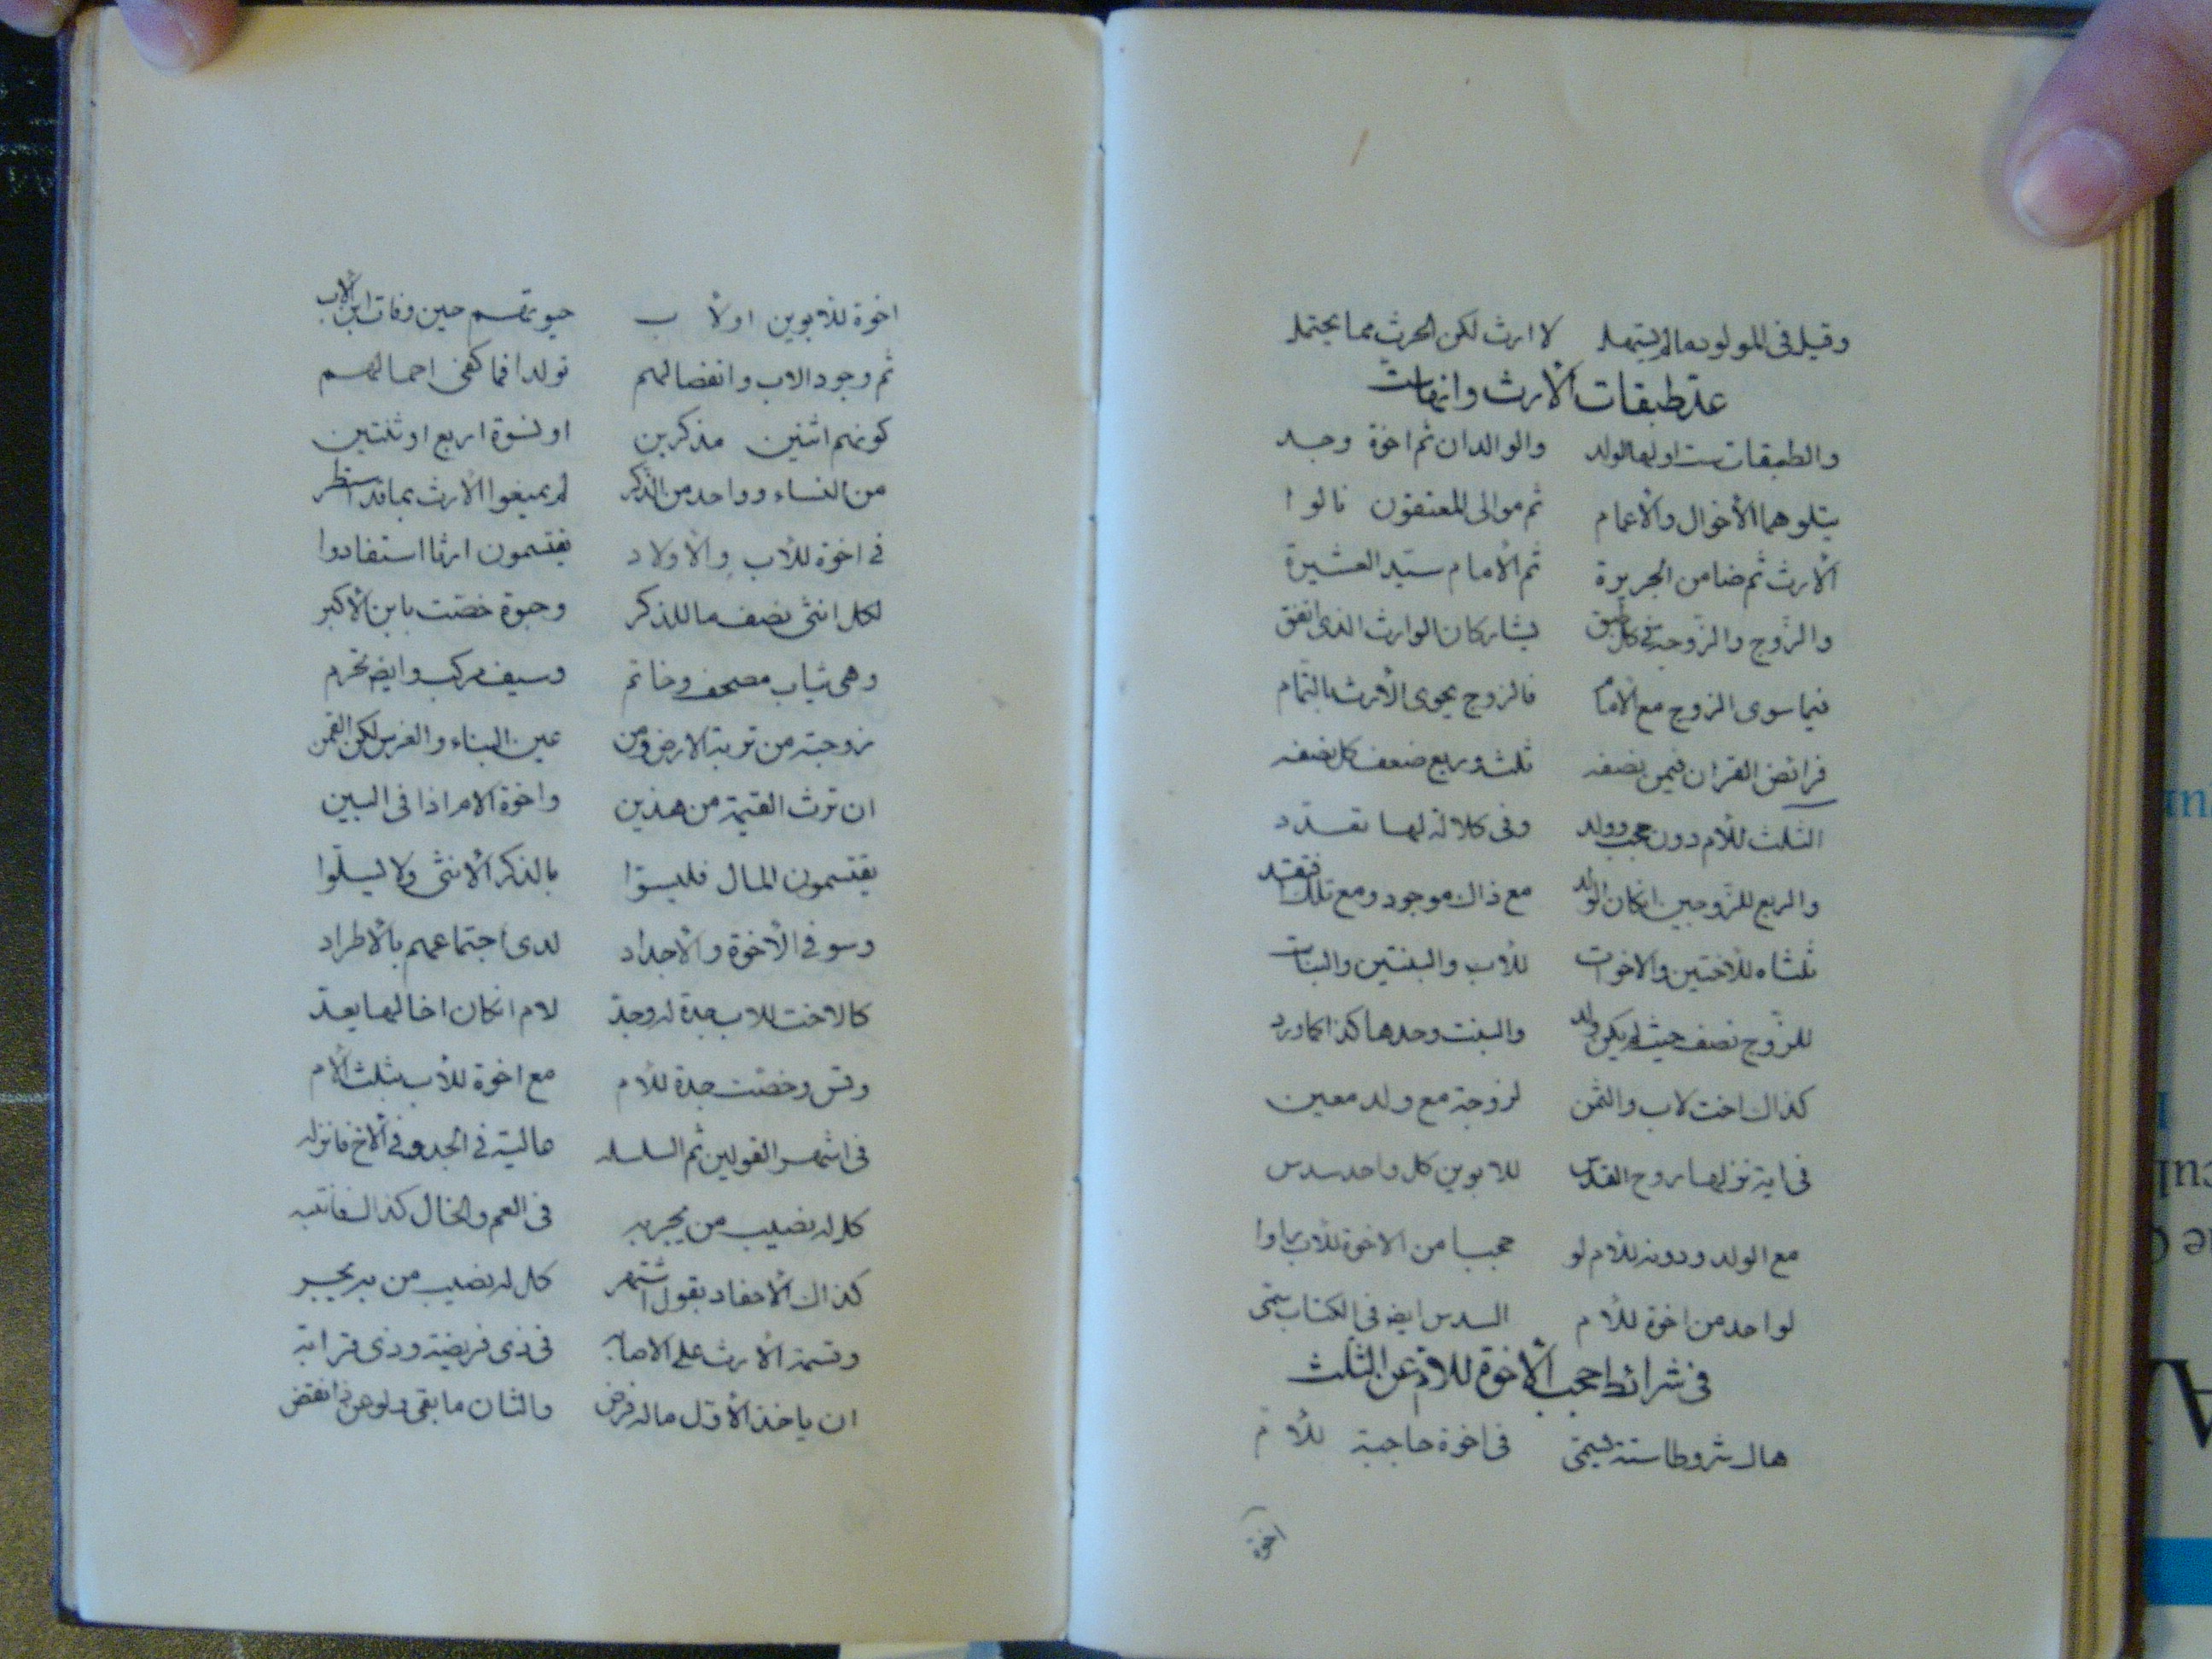 وقيل فى المولود مالم يستهل لا ارث لكن الحرث مما يحتمل
عدّ طبقات الأرث وانهاست
والطبقات ست اولها الولد والوالدان ثم اخوة وجد
يتلوهما الأخوال والأعمام ثم موالى المعتقون نالوا
الأرث ثم ضامن الجريرة ثم الأمام سيّد العشيرة
والزّوج والزّوجة فى كل طبق يشاركان الوارث الذى اتفق
فيما سوى الزوج مع الأمام فالزوج يحوى الأرث بالتمام
فرائض القران فيمن نصفه ثلث وربع ضعف كل نصفه
الثلث للأم دون حجب وولد وفى كلالة لها تعدد
والربع للزّوجين انكان الولد مع ذاك موجود ومع تلك افتقد
ثلثاه للأختين والاخوات للأب والبنتين والبنات
للزّوج نصف حيث لم يكن ولد والبنت وحدها كذا كما ورد
كذاك اخت لاب والثمن لزوجة مع ولد معين
فى اية نزلها روح القدس للابوين كل واحد سدس
مع الولد ودونه للأم لو حجبا من الاخوة للأب راوا
لواحد من اخوة للأم السدس ايضا فى الكتاب سمّى
فى شرائط حجب الأخوة للامّ عن الثلث
هاك شروطا ستة ليمّى فى اخوة حاجبة للأمّ
اخوة
اخوة للأبوين اولأب حيوتهم حين وفات ابن الأب
ثم وجود الاب وانفصالهم تولدا فما كفى احمالهم
كونهم اثنين مذكرين او نسوة اربع او ثنتين
من النساء وواحد من الذكر لم يمنعوا الأرث بما قد استطر
فى اخوة للأب والأولاد يقتسمون ارثا استفادوا
لكل انثى نصف ما للذكر وحبوة خصّت بابن الأكبر
وهى ثياب مصحف وخاتم وسيف مركب وايض تحرم
زوجته من تربة الارض ومن عين البناء والغرس لكن القمن
ان ترث القيمة من هذين واخوة الام اذا فى البين
يقتسمون المال فليسوّا بالذكر الأنثى ولا ليسلّوا
وسو فى الأخوة والأجداد لدى اجتماعهم بالأطراد
كالاخت للاب جدة له وجدّ لام انكان اخا لها يعدّ
وقس وخصّت جدة للأم مع اخوة للأب بثلث الأم
فى اشهر القولين ثم السلسله عالية فى الجد وفى الأخ نازله
كل له نصيب من يجر به فى العم والخال كذا فانتبه
كذاك الأحفاد بقول اشتهر كل له نصيب من به يجر
وقسمة الأرث على الاصابه فى ذى فريضة وذى قرابة
ان ياخذ الأوّل ماله فرض والثان ما بقى ولو عن ذا نقض